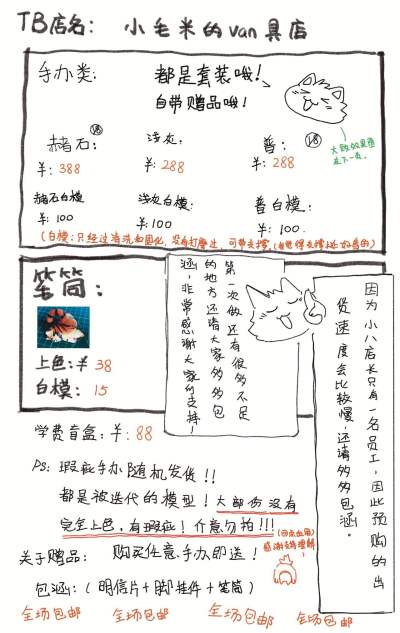 TB店名: 小毛米的van具店
手办类:
都是套装哦!
自带赠品哦!
大致效果图
在下一页。
赭石: 18
¥: 388
浅灰:
¥: 288
普: 18
¥: 288
赭石白模
¥: 100
浅灰白模:
¥: 100
普白模:
¥: 100.
(白模:只经过清洗和固化,没有打磨过,可带支撑
笔筒:
上色:¥ 38
白模: 15
第一次做还有很多不足
的地方还请大家多多包
涵,非常感谢大家的支持!
因为小八店长只有一名员工,因此预购的出
货速度会比较慢,还请多多包涵。
学费盲盒:¥: 88
PS: 瑕疵手办随机发货!!
都是被迭代的模型!大部份没有
完全上色,有瑕疵!介意勿拍!!!
(回点血用)
感谢支持理解!
关于赠品: 购买任意手办即送!
包涵:(明信片+脚挂件+笔筒)
全场包邮 全场包邮 全场包邮 全场包邮